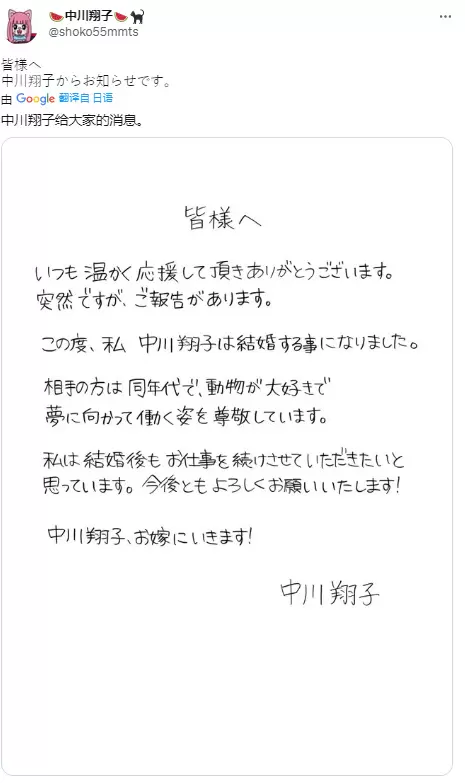 🍉中川翔子🍉🐈‍⬛
@shoko55mmts
皆様へ
中川翔子からお知らせです。
由 Google 翻译自 日语
中川翔子给大家的消息。
皆様へ
いつも温かく応援して頂きありがとうございます。
突然ですが、ご報告があります。
この度、私 中川翔子は結婚する事になりました。
相手の方は同年代で、動物が大好きで
夢に向かって働く姿を尊敬しています。
私は結婚後もお仕事を続けさせていただきたいと
思っています。今後ともよろしくお願いいたします!
中川翔子、お嫁にいきます!
中川翔子